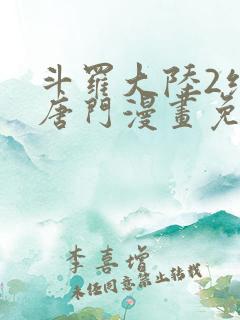 斗羅大陸2
唐門漫畫免
李喜增
未經同意禁止轉載